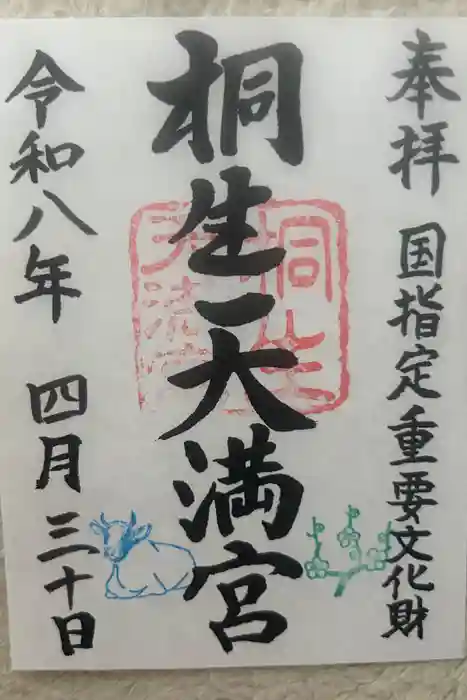 奉拝 国指定重要文化財
桐生天満宮
桐生天満宮
令和八年 四月三十日